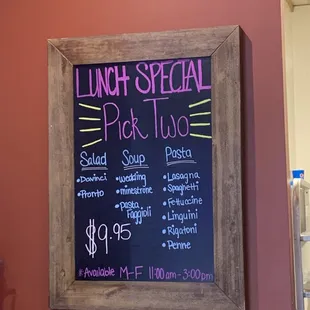 LUNCH SPECIAL
Pick Two
Salad
• Davinci
• Pronto
Soup
• wedding
• minestrone
• Pasta
Faggioli
Pasta
• Lasagna
• Spaghetti
• Fettuccine
• Linguini
• Rigatoni
• Penne
$9.95
* Available M-F 11:00am - 3:00pm